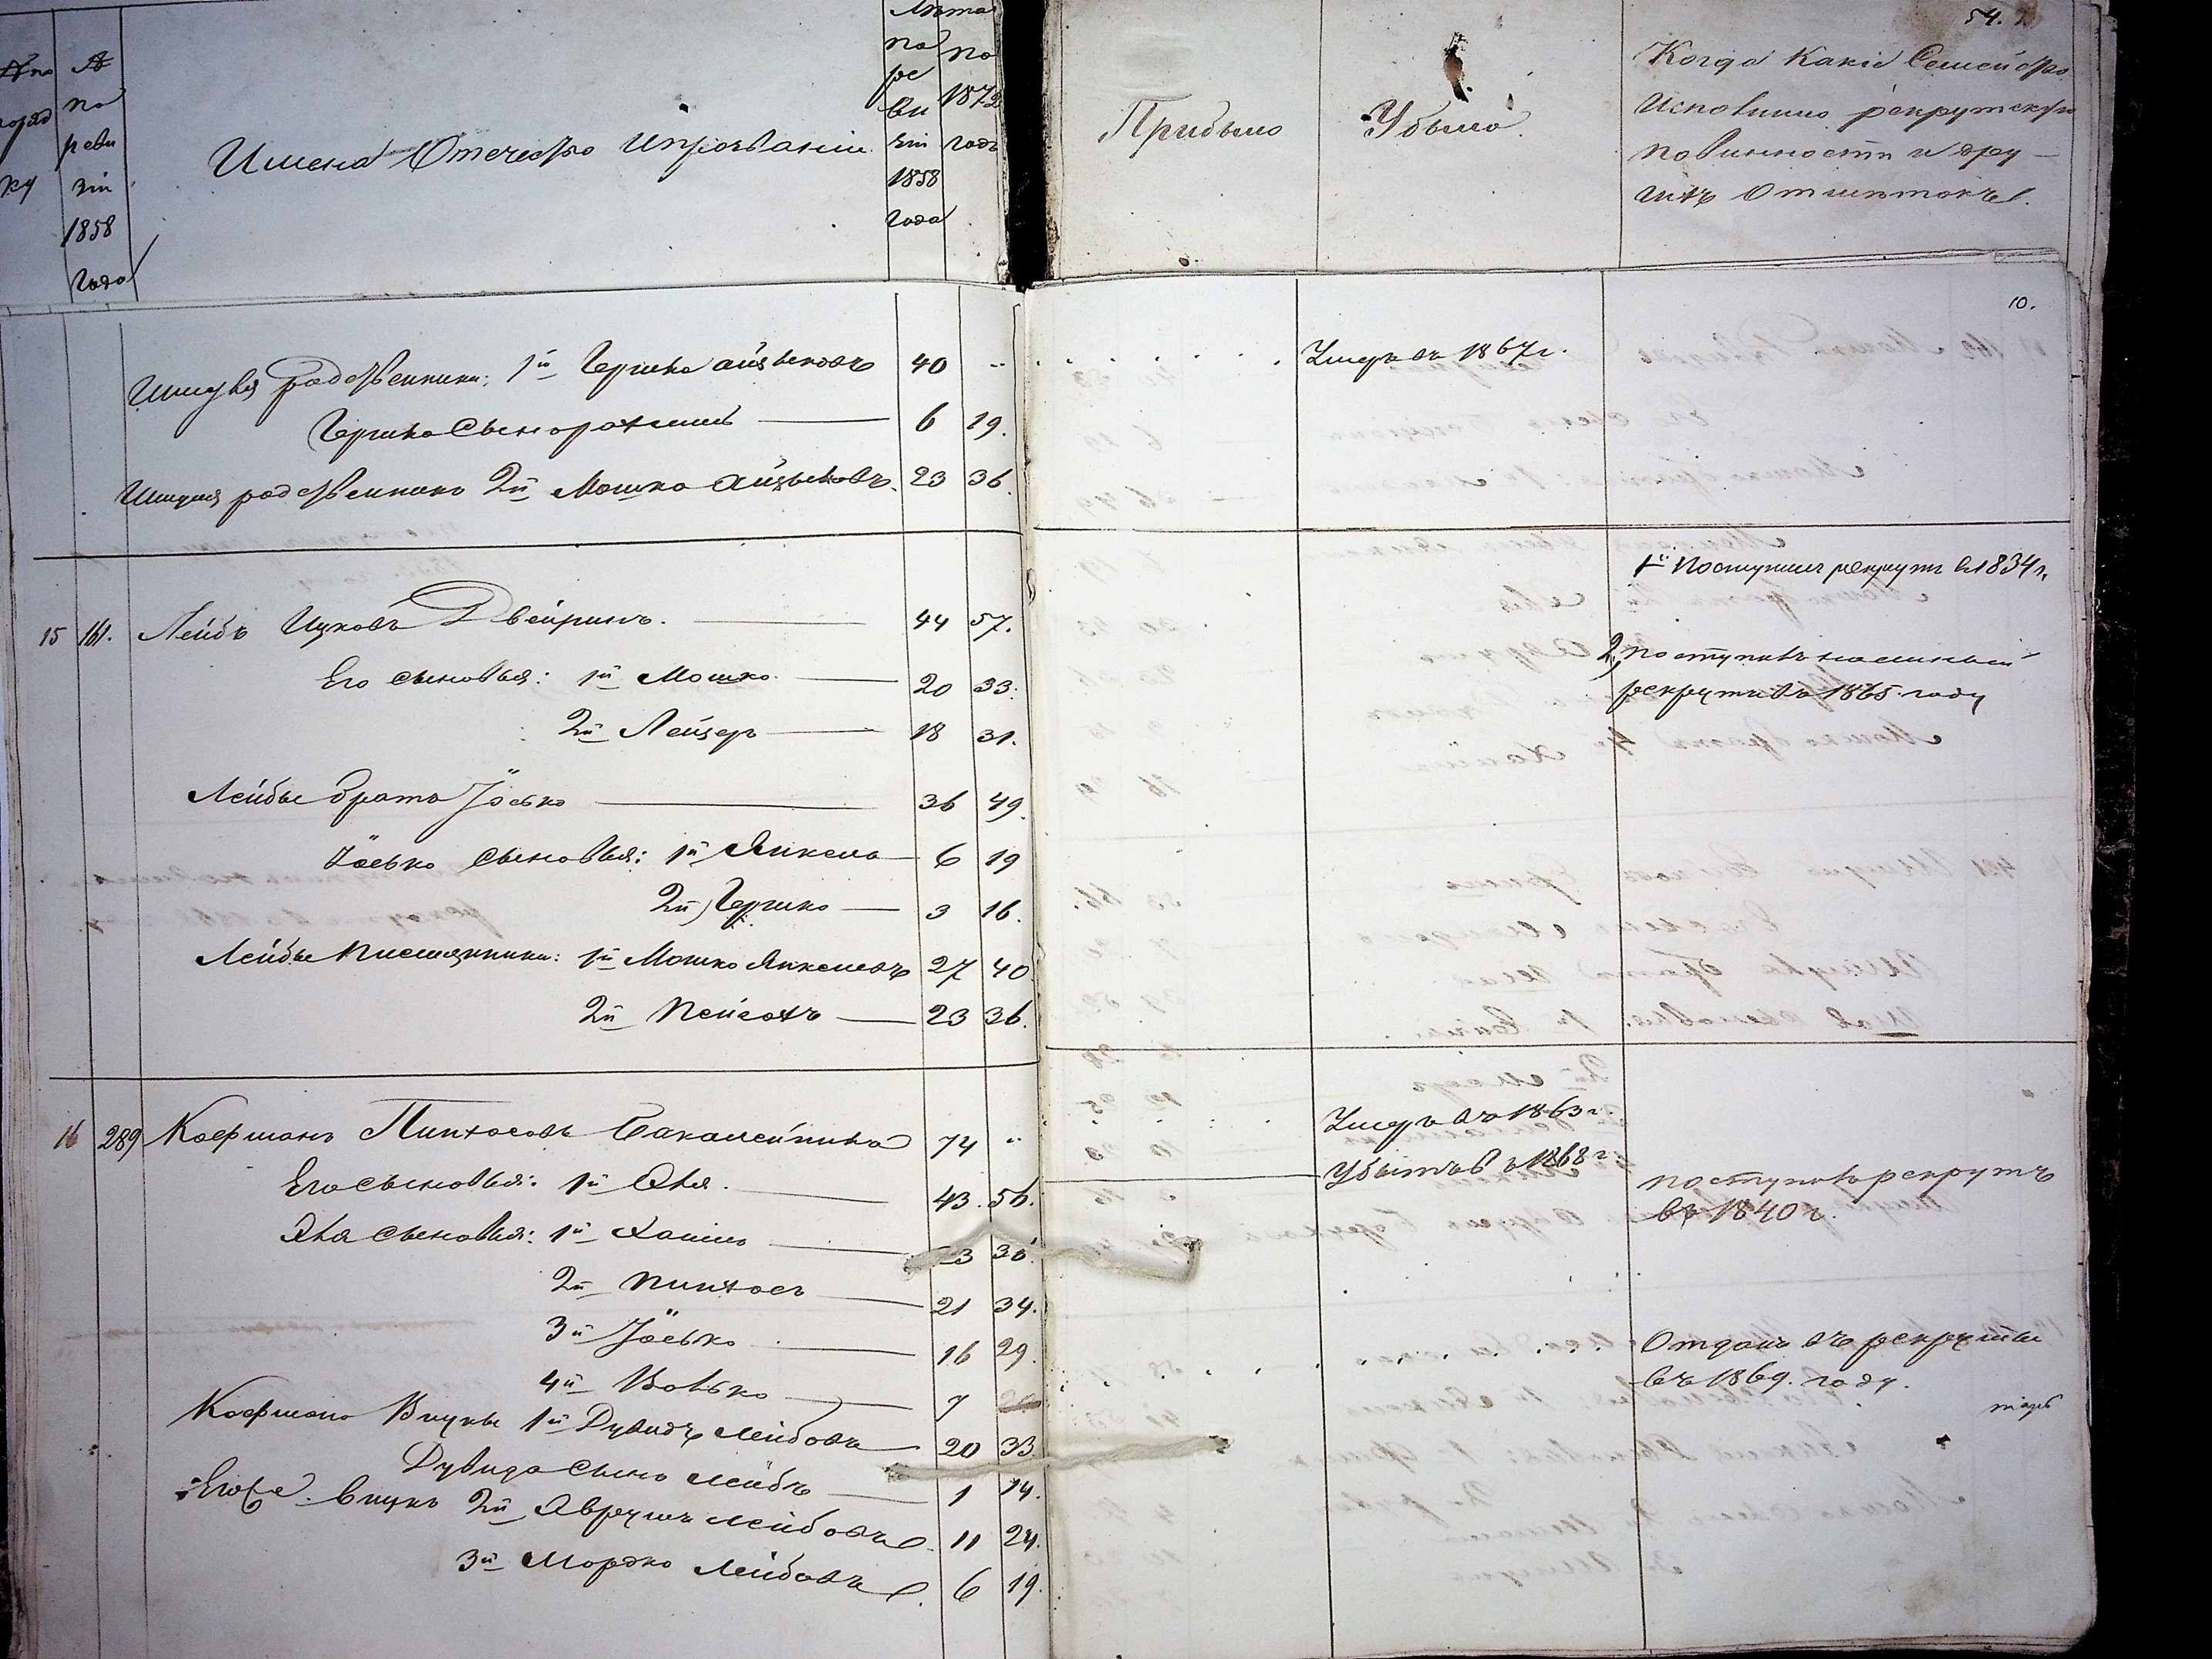 54.
№ по
поряд
ку
№
по
реви
зіи
1858
года
Имена Отечество Ипрозваніи
Лѣта
по
ре
ви
зіи
1858
года
по
1872
годъ
Прибыло
Убыло.
Когда Какіе Семейство
Исполнило рекрутскую
повинность и дру-
гихъ Отмѣтокъ.
10.
родственники: 1й Гершко Айзиковъ 40 " Умеръ въ 1867 г.
Гершко Сынъ 6 19.
родственникъ 2й Мошко Айзиковъ. 23 36.
15 161. Лейбъ Ицковъ Двейринъ. 44 57.
1й Поступилъ рекрутъ в 1834 г.
Его сыновья: 1й Мошко. 20 33.
2, поступилъ
рекрутъ въ 1865 году
2й Лейзеръ 18 31.
Лейбы братъ Іосько 36 49.
Іосько сыновья: 1й Янкель 6 19
2й Гершко 3 16.
Лейбы племянники: 1й Мошко Янкелевъ 27 40
2й Пейсахъ 23 36.
16 289 Кофманъ Пинхосовъ 74 " Умеръ въ 1863 г.
Его сыновья: 1й 43. 56. 1868 г
поступилъ рекрутъ
въ 1840 г.
сыновья: 1й Хаимъ 23 36.
2й Пинхосъ 21 34.
3й Іосько 16 29.
Отданъ въ рекруты
въ 1869. году.
4й Вовько 7
Кофмана Внуки 1й Дувидъ Лейбовъ 20 33.
Дувида сынъ Лейбъ 1 14.
Его же внукъ 2й Аврумъ Лейбовъ. 11 24.
3й Мордко Лейбовъ. 6 19.